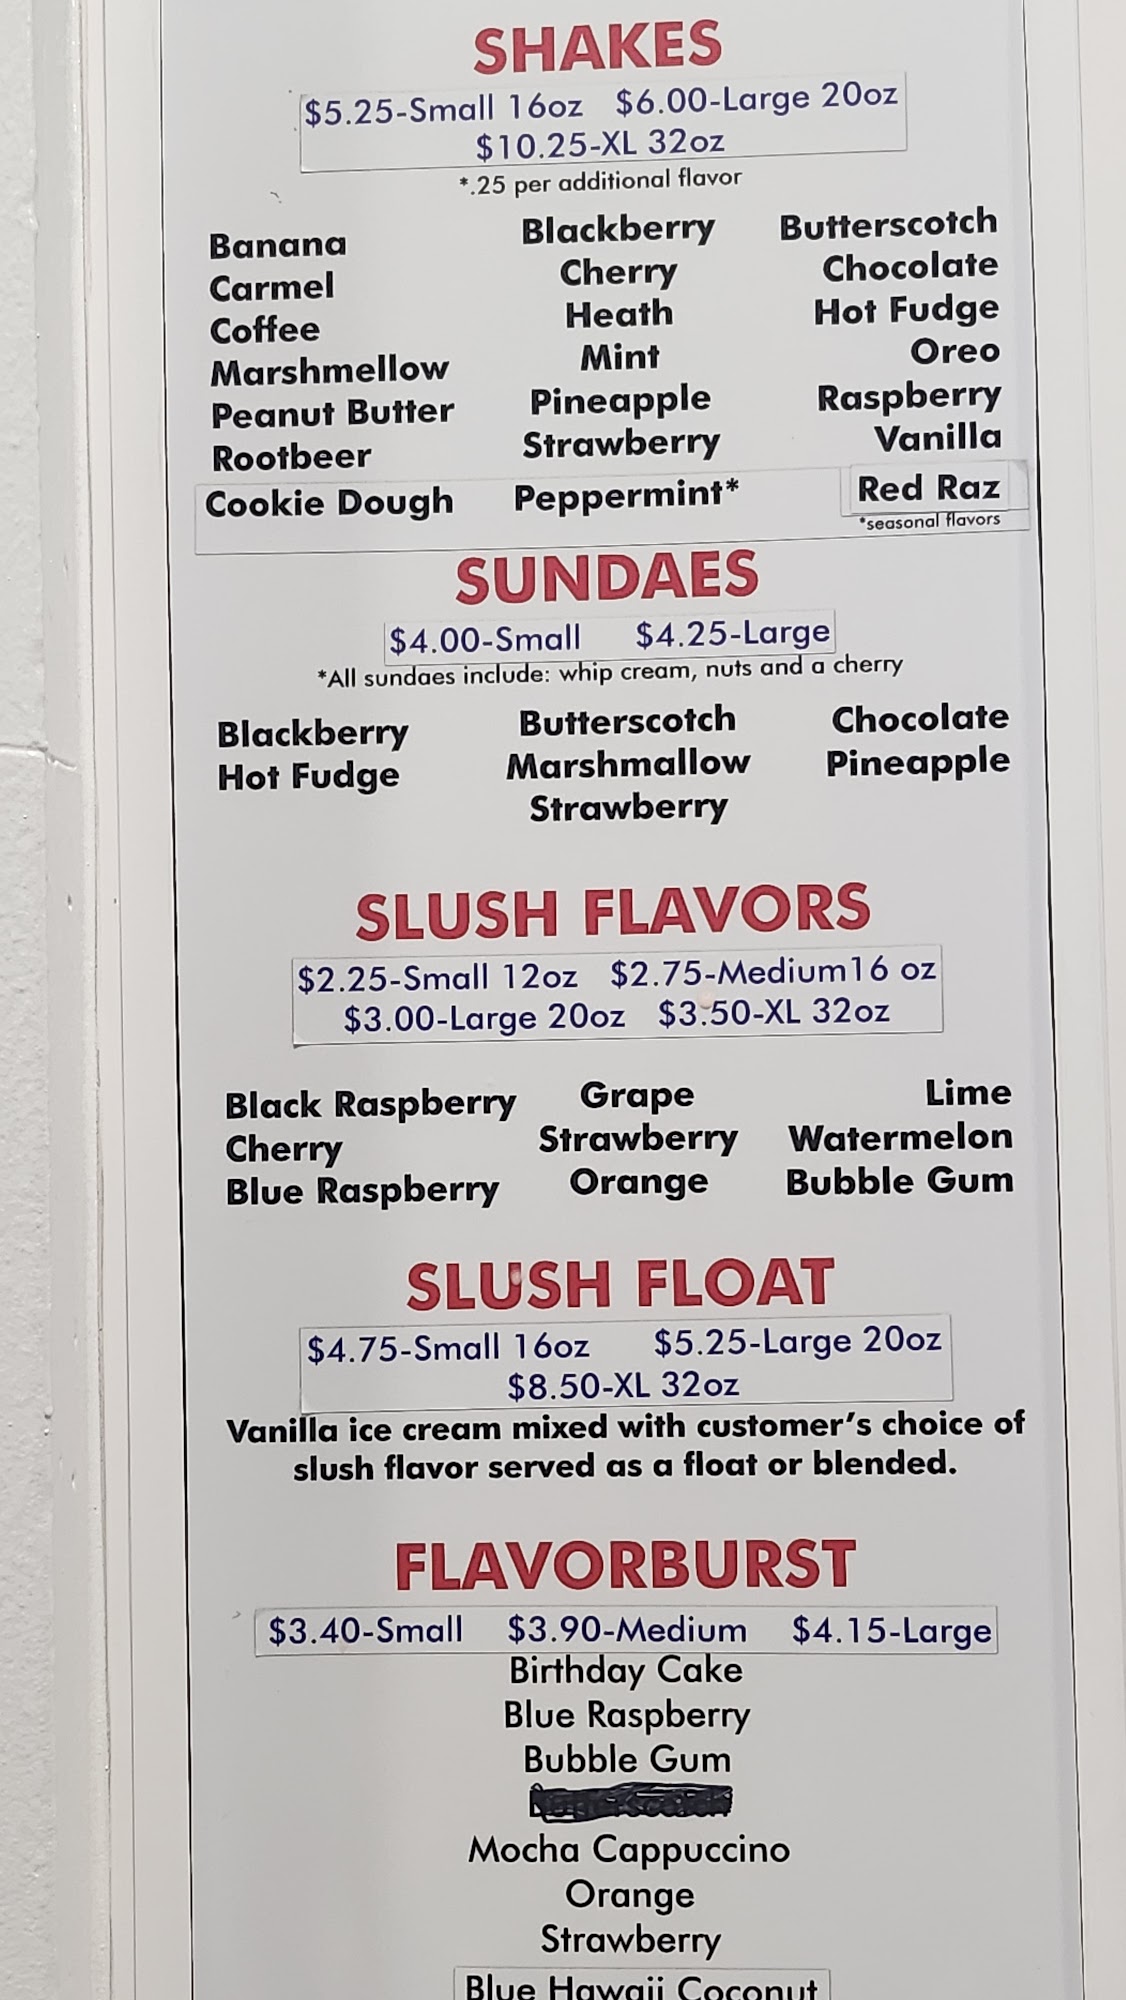 SHAKES
$5.25-Small 16oz $6.00-Large 20oz
$10.25-XL 32oz
*.25 per additional flavor
Banana Blackberry Butterscotch
Carmel Cherry Chocolate
Coffee Heath Hot Fudge
Marshmellow Mint Oreo
Peanut Butter Pineapple Raspberry
Rootbeer Strawberry Vanilla
Cookie Dough Peppermint* Red Raz
*seasonal flavors
SUNDAES
$4.00-Small $4.25-Large
*All sundaes include: whip cream, nuts and a cherry
Blackberry Butterscotch Chocolate
Hot Fudge Marshmallow Pineapple
Strawberry
SLUSH FLAVORS
$2.25-Small 12oz $2.75-Medium16 oz
$3.00-Large 20oz $3.50-XL 32oz
Black Raspberry Grape Lime
Cherry Strawberry Watermelon
Blue Raspberry Orange Bubble Gum
SLUSH FLOAT
$4.75-Small 16oz $5.25-Large 20oz
$8.50-XL 32oz
Vanilla ice cream mixed with customer's choice of
slush flavor served as a float or blended.
FLAVORBURST
$3.40-Small $3.90-Medium $4.15-Large
Birthday Cake
Blue Raspberry
Bubble Gum
Mocha Cappuccino
Orange
Strawberry
Blue Hawaii Coconut